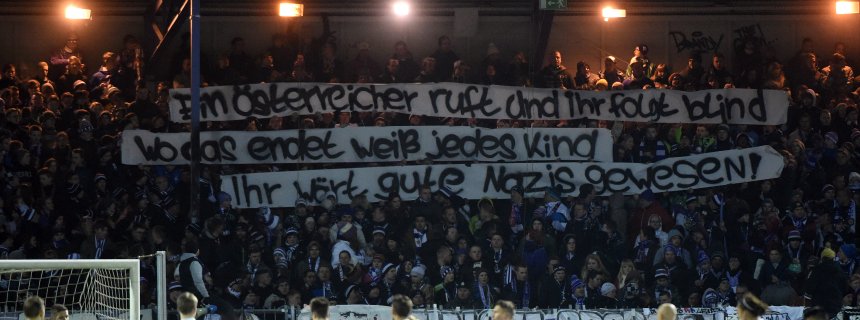 Ein Österreicher ruft und ihr folgt blind
Wo das endet weiß jedes Kind
Ihr wärt gute Nazis gewesen!